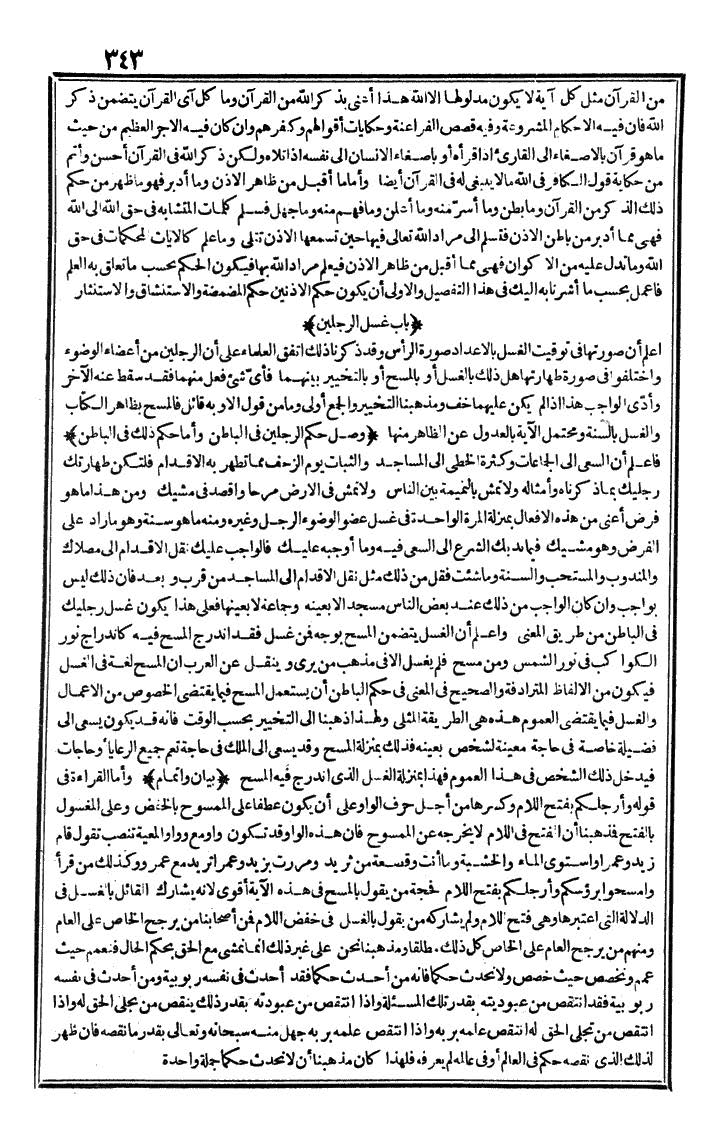 ٣٤٣
من القرآن مثل كل آية لا يكون مدلولها الا الله هذا أعنى بذكر الله من القرآن وما كل آى القرآن يتضمن ذكر
الله فان فيه الاحكام المشروعة وفيه قصص الفراعنة وحكايات أقوالهم وكفرهم وان كان فيه الاجر العظيم من حيث
ما هو قرآن بالاصغاء الى القارئ اذا قرأه أو باصغاء الانسان الى نفسه اذا تلاه ولكن ذكر الله فى القرآن أحسن وأتم
من حكاية قول الكافر فى الله ما لا ينبغى له فى القرآن أيضا وأما ما أقبل من ظاهر الاذن وما أدبر فهو ما ظهر من حكم
ذلك الذكر من القرآن وما بطن وما أسرّ منه وما أعلن وما فهم منه وما جهل فسلم كلمات المتشابه فى حق الله الى الله
فهى مما أدبر من باطن الاذن فتسلم الى مراد الله تعالى فيها حين تسمعها الاذن تتلى وما علم كالايات المحكمات فى حق
الله وما تدل عليه من الاكوان فهى مما أقبل من ظاهر الاذن فيعلم مراد الله بها فيكون الحكم بحسب ما تعلق به العلم
فاعمل بحسب ما أشرنا به اليك فى هذا التفصيل والاولى أن يكون حكم الاذنين حكم المضمضة والاستنشاق والاستنثار
﴿باب غسل الرجلين﴾
اعلم أن صورتها فى توقيت الغسل بالاعداد صورة الرأس وقد ذكرنا ذلك اتفق العلماء على أن الرجلين من أعضاء الوضوء
واختلفوا فى صورة طهارتها هل ذلك بالغسل أو بالمسح أو بالتخيير بينهما فأى شئ فعل منهما فقد سقط عنه الآخر
وأدّى الواجب هذا اذا لم يكن عليهما خف ومذهبنا التخيير والجمع أولى وما من قول الا وبه قائل فالمسح بظاهر الكتاب
والغسل بالسنة ومحتمل الآية بالعدول عن الظاهر منها ﴿وصل حكم الرجلين فى الباطن وأما حكم ذلك فى الباطن﴾
فاعلم أن السعى الى الجماعات وكثرة الخطى الى المساجد والثبات يوم الزحف مما تطهر به الاقدام فلتكن طهارتك
رجليك بما ذكرناه وأمثاله ولا تمش بالنميمة بين الناس ولا تمش فى الارض مرحا واقصد فى مشيك ومن هذا ما هو
فرض أعنى من هذه الافعال بمنزلة المرة الواحدة فى غسل عضو الوضوء الرجل وغيره ومنه ما هو سنة وهو ما زاد على
الفرض وهو مشيك فيما ندبك الشرع الى السعى فيه وما أوجبه عليك فالواجب عليك نقل الاقدام الى مصلاك
والمندوب والمستحب والسنة وما شئت فقل من ذلك مثل نقل الاقدام الى المساجد من قرب وبعد فان ذلك ليس
بواجب وان كان الواجب من ذلك عند بعض الناس مسجد الا بعينه وجماعة لا بعينها فعلى هذا يكون غسل رجليك
فى الباطن من طريق المعنى واعلم أن الغسل يتضمن المسح بوجه فمن غسل فقد اندرج المسح فيه كاندراج نور
الكواكب فى نور الشمس ومن مسح فلم يغسل الا فى مذهب من يرى وينقل عن العرب ان المسح لغة فى الغسل
فيكون من الالفاظ المترادفة والصحيح فى المعنى فى حكم الباطن أن يستعمل المسح فيما يقتضى الخصوص من الاعمال
والغسل فيما يقتضى العموم هذه هى الطريقة المثلى ولهذا ذهبنا الى التخيير بحسب الوقت فانه قد يكون يسعى الى
فضيلة خاصة فى حاجة معينة لشخص بعينه فذلك بمنزلة المسح وقد يسعى الى الملك فى حاجة تعم جميع الرعايا أو حاجات
فيدخل ذلك الشخص فى هذا العموم فهذا بمنزلة الغسل الذى اندرج فيه المسح ﴿بيان واتمام﴾ وأما القراءة فى
قوله وأرجلكم بفتح اللام وكسرها من أجل حرف الواو على أن يكون عطفا على الممسوح بالخفض وعلى المغسول
بالفتح فذهبنا أن الفتح فى اللام لا يخرجه عن الممسوح فان هذه الواو قد تكون واو مع وواو المعية تنصب تقول قام
زيد وعمرا واستوى الماء والخشبة وما أنت وقصعة من ثريد ومررت بزيد وعمرا تريد مع عمرو وكذلك من قرأ
وامسحوا برؤسكم وأرجلكم بفتح اللام فحجة من يقول بالمسح فى هذه الآية أقوى لانه يشارك القائل بالغسل فى
الدلالة التى اعتبرها وهى فتح اللام ولم يشاركه من يقول بالغسل فى خفض اللام فمن أصحابنا من يرجح الخاص على العام
ومنهم من يرجح العام على الخاص كل ذلك مطلقا ومذهبنا نحن على غير ذلك انما نمشى مع الحق بحكم الحال فنعمم حيث
عمم ونخصص حيث خصص ولا نحدث حكما فانه من أحدث حكما فقد أحدث فى نفسه ربوبية ومن أحدث فى نفسه
ربوبية فقد انتقص من عبوديته بقدر تلك المسئلة واذا انتقص من عبودته بقدر ذلك ينقص من تجلى الحق له واذا
انتقص من تجلى الحق له انتقص علمه بربه واذا انتقص علمه بربه جهل منه سبحانه وتعالى بقدر ما نقصه فان ظهر
لذلك الذى نقصه حكم فى العالم أو فى عالمه لم يعرفه فلهذا كان مذهبنا أن لا نحدث حكما جملة واحدة